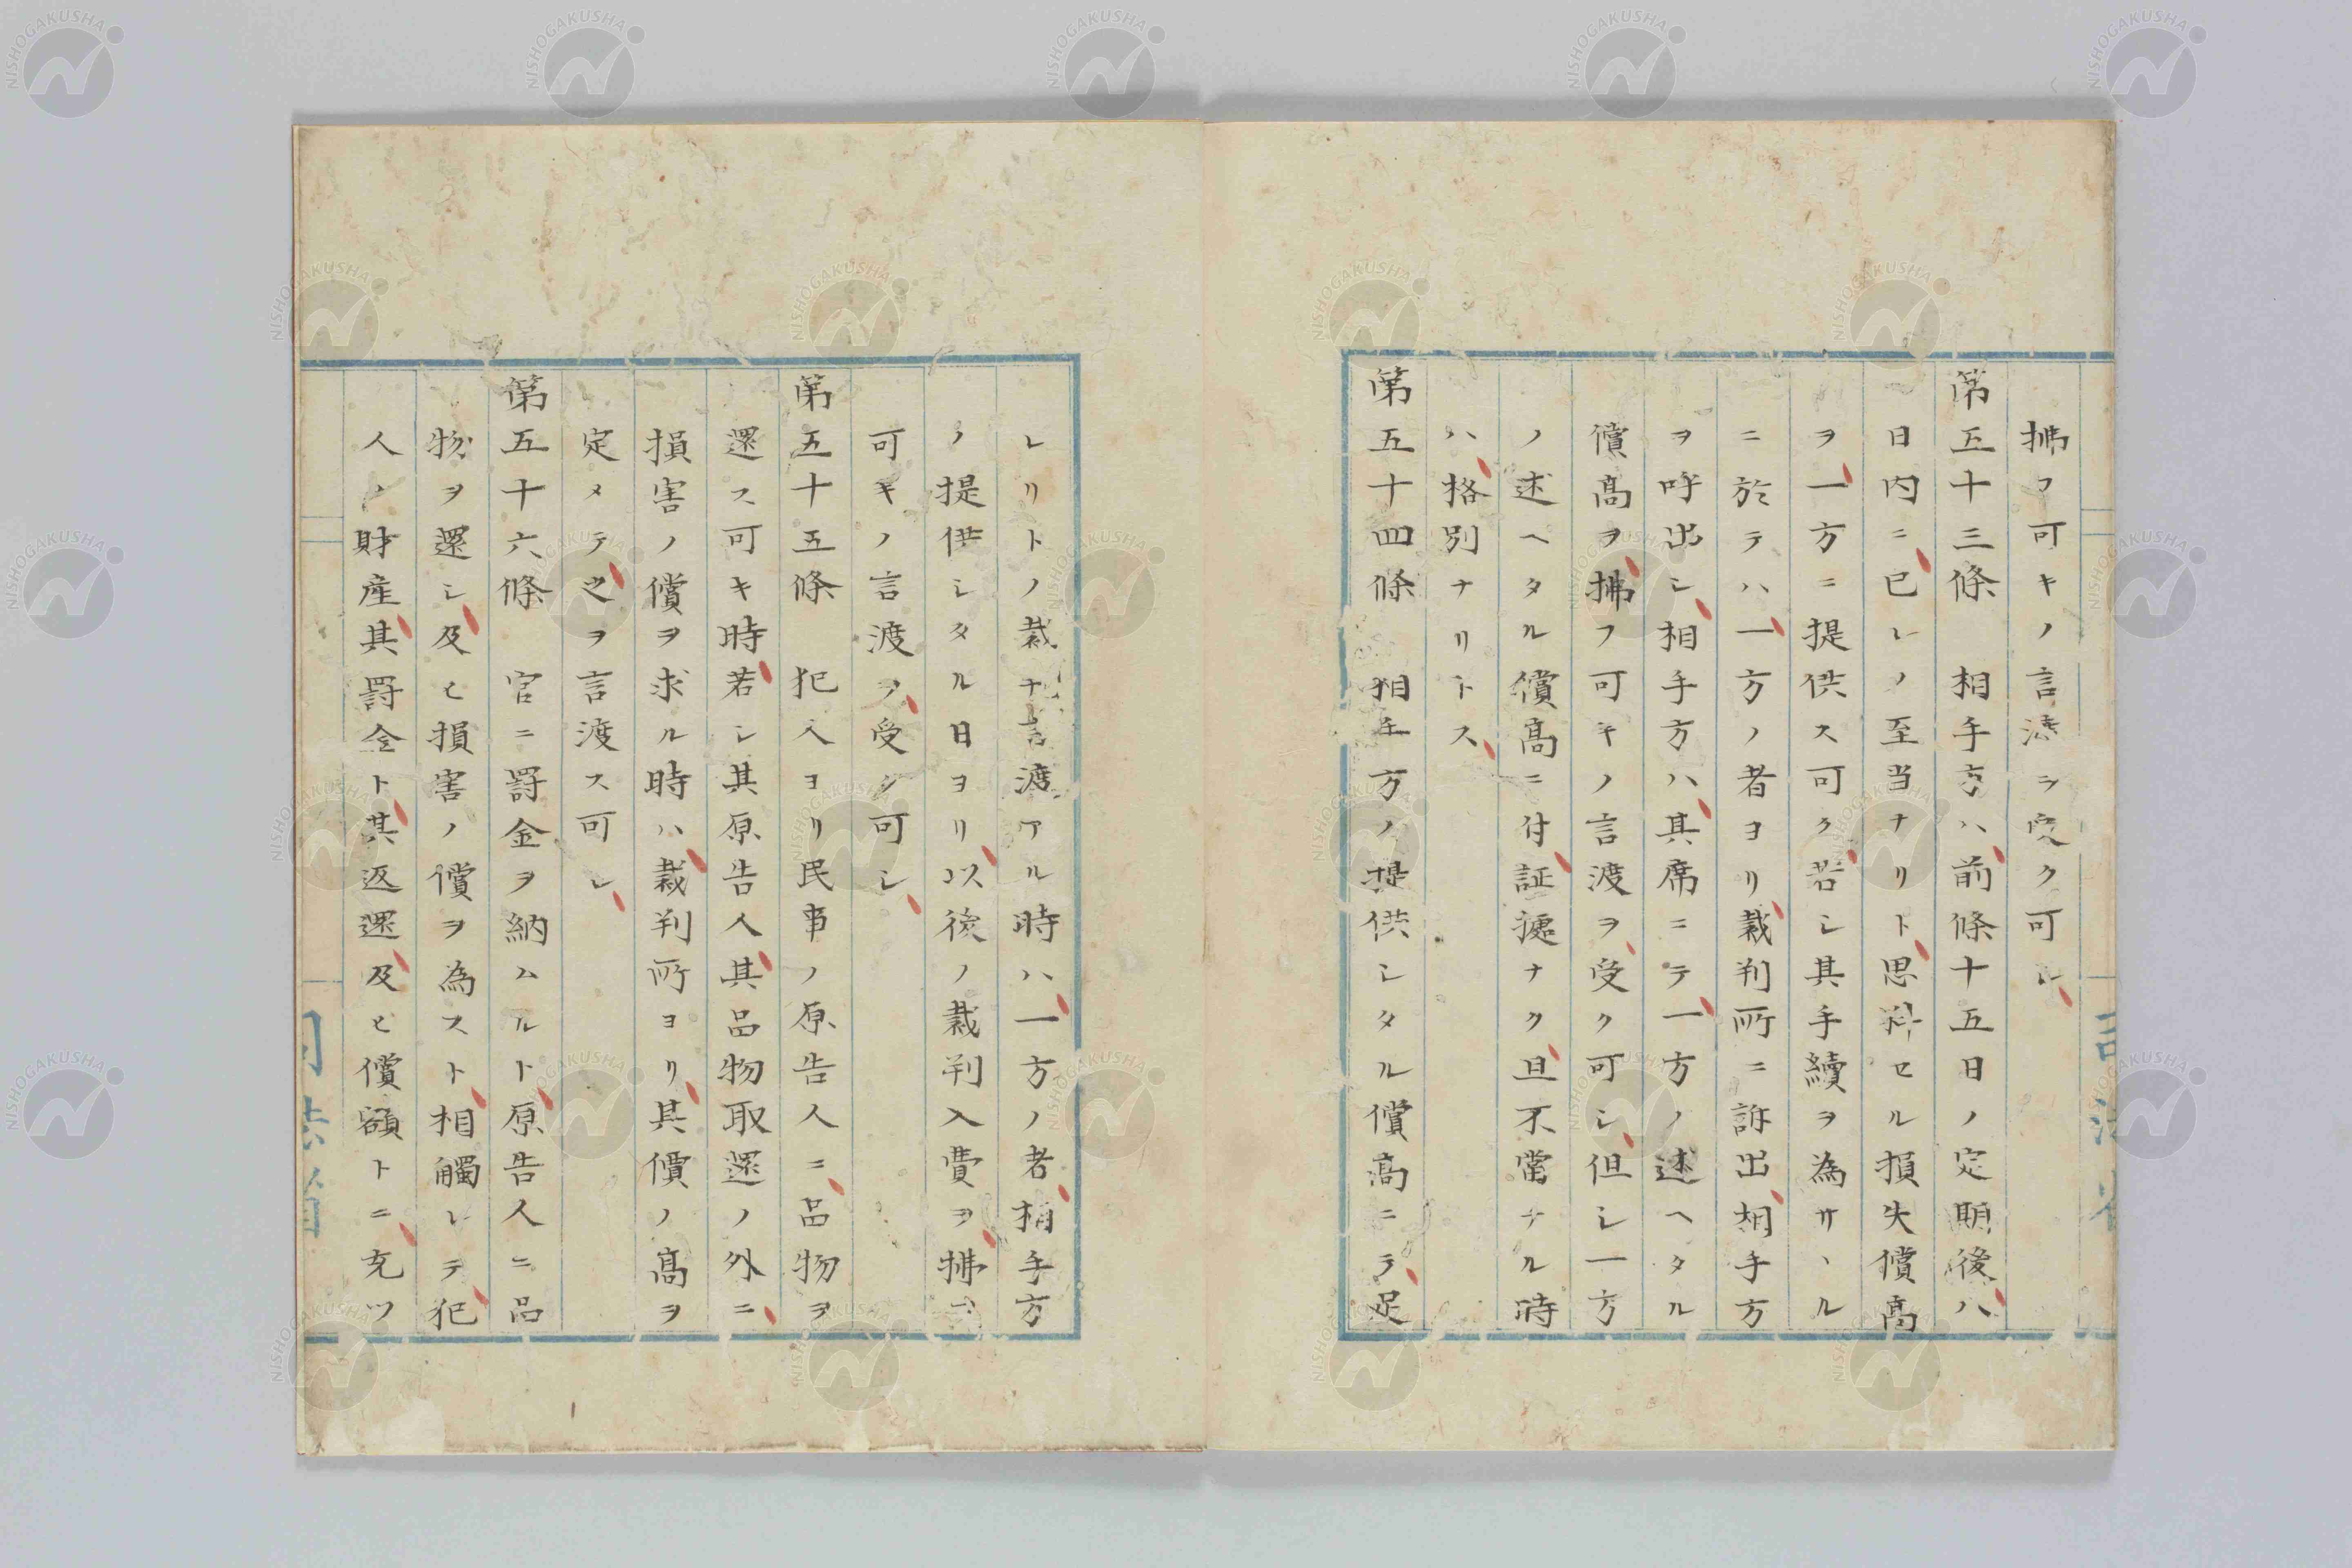 拂フ可キノ言渡ヲ受ク可シ
第五十三條　相手方ハ前條十五日ノ定期後ハ
日内ニ已レノ至当ナリト思料セル損失償高
ヲ一方ニ提供ス可ク若シ其手續ヲ為サヽル
ニ於テハ一方ノ者ヨリ裁判所ニ訴出相手方
ヲ呼出シ相手方ハ其席ニテ一方ノ述ヘタル
償高ヲ拂フ可キノ言渡ヲ受ク可シ但シ一方
ノ述ヘタル償高ニ付証據ナク且不當ナル時
ハ格別ナリトス
第五十四條　相手方ノ提供シタル償高ニテ足
レリトノ裁判言渡アル時ハ一方ノ者相手方
ノ提供シタル日ヨリ以後ノ裁判入費ヲ拂フ
可キノ言渡ヲ受ク可シ
第五十五條　犯人ヨリ民事ノ原告人ニ品物ヲ
還ス可キ時若シ其原告人其品物取還ノ外ニ
損害ノ償ヲ求ル時ハ裁判所ヨリ其償ノ高ヲ
定メテ之ヲ言渡ス可シ
第五十六條　官ニ罸金ヲ納ムルト原告人ニ品
物ヲ還シ及ヒ損害ノ償ヲ為スト相觸レテ犯
人ノ財産其罸金ト其返還及ヒ償額トニ充ツ
司法省
NISHOGAKUSHA